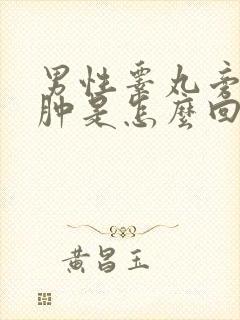 男性睾丸旁
肿是怎麼回
黄昌玉